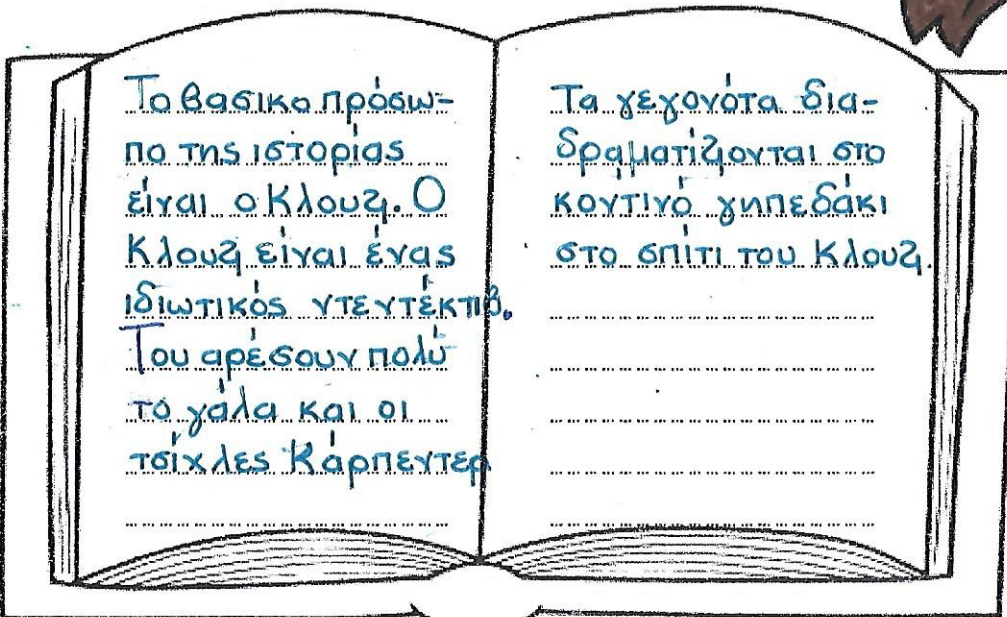 Το βασικο πρόσω-
πο της ιστορίας
είναι ο Κλουζ. Ο
Κλουζ είναι ένας
ιδιωτικός ντεντέκτιβ.
Του αρέσουν πολύ
το γάλα και οι
τσίχλες Κάρπεντερ
Τα γεγονότα δια-
δραματίζονται στο
κοντινό γηπεδάκι
στο σπίτι του Κλουζ.